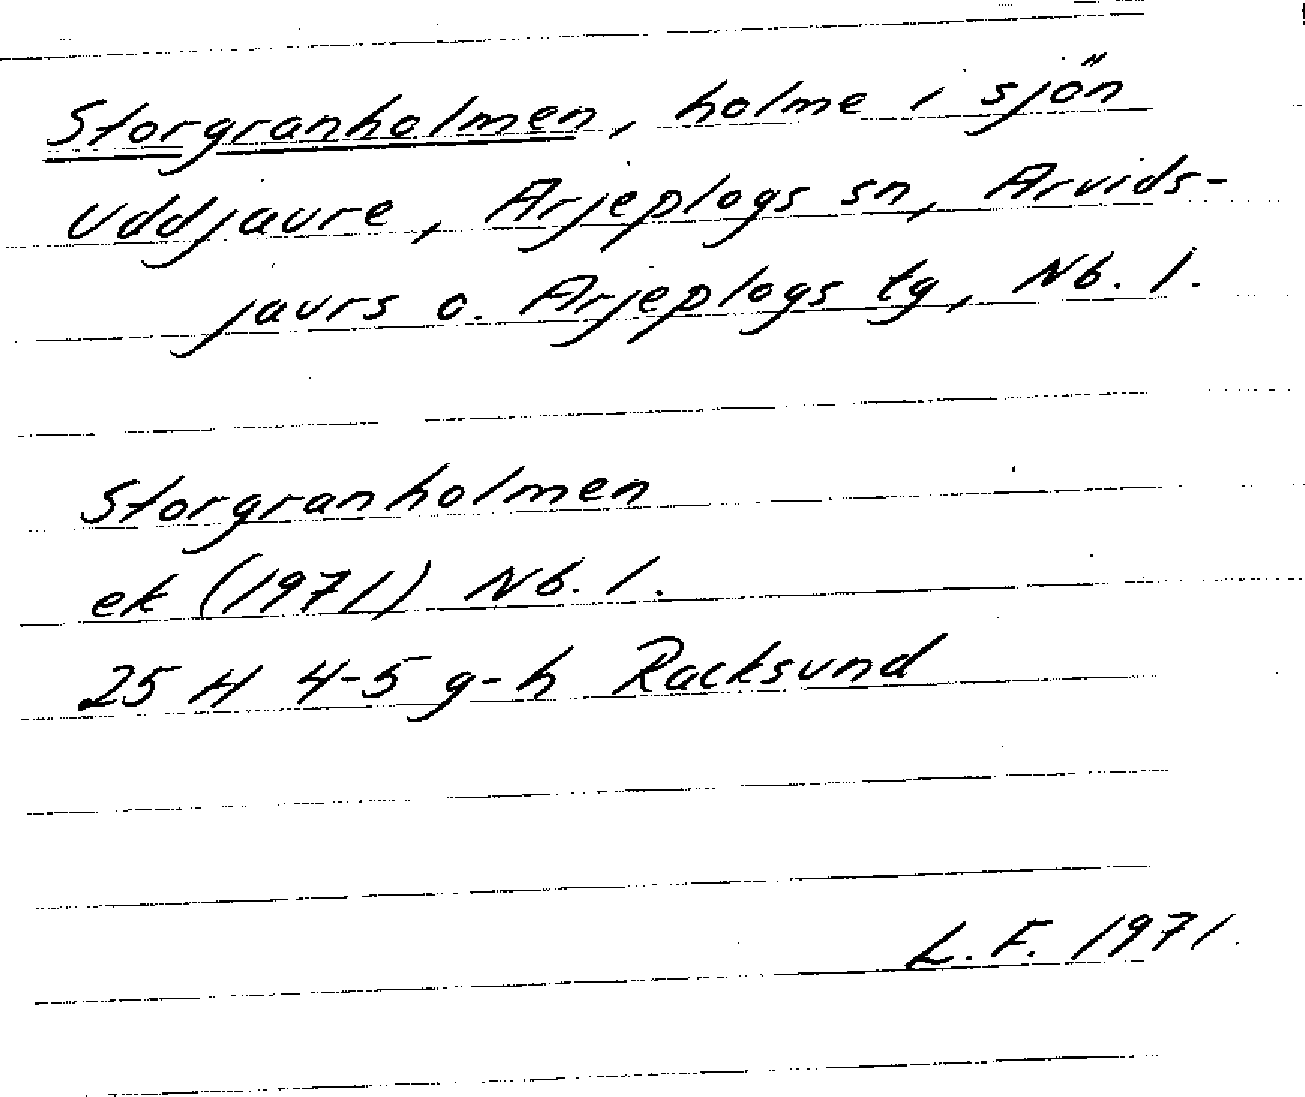 Storgranholmen, holme i sjön
Uddjaure, Arjeplogs sn, Arvids-
jaurs o. Arjeplogs tg, Nb. l.
Storgranholmen
ek (1971) Nb. l.
25 H 4-5 g-h Racksund
L. F. 1971.